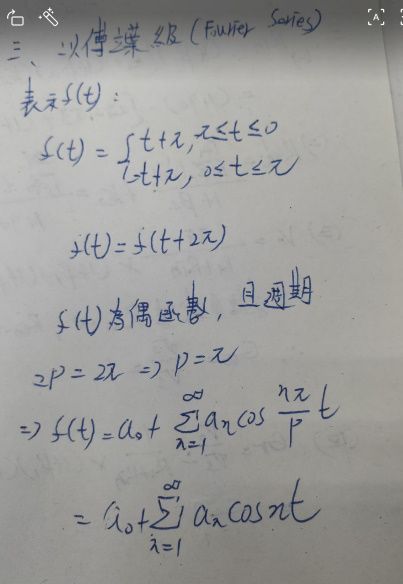 三、以傅葉級(Fourier Series)
表示f(t):
f(t) = { t+π, π≤t≤0
-t+π, 0≤t≤π
f(t) = f(t+2π)
f(t)為偶函數,且週期
2P = 2π => P = π
=> f(t) = a₀ + ∑_{n=1}^{∞} aₙ cos (nπ/P) t
= a₀ + ∑_{n=1}^{∞} aₙ cos nt